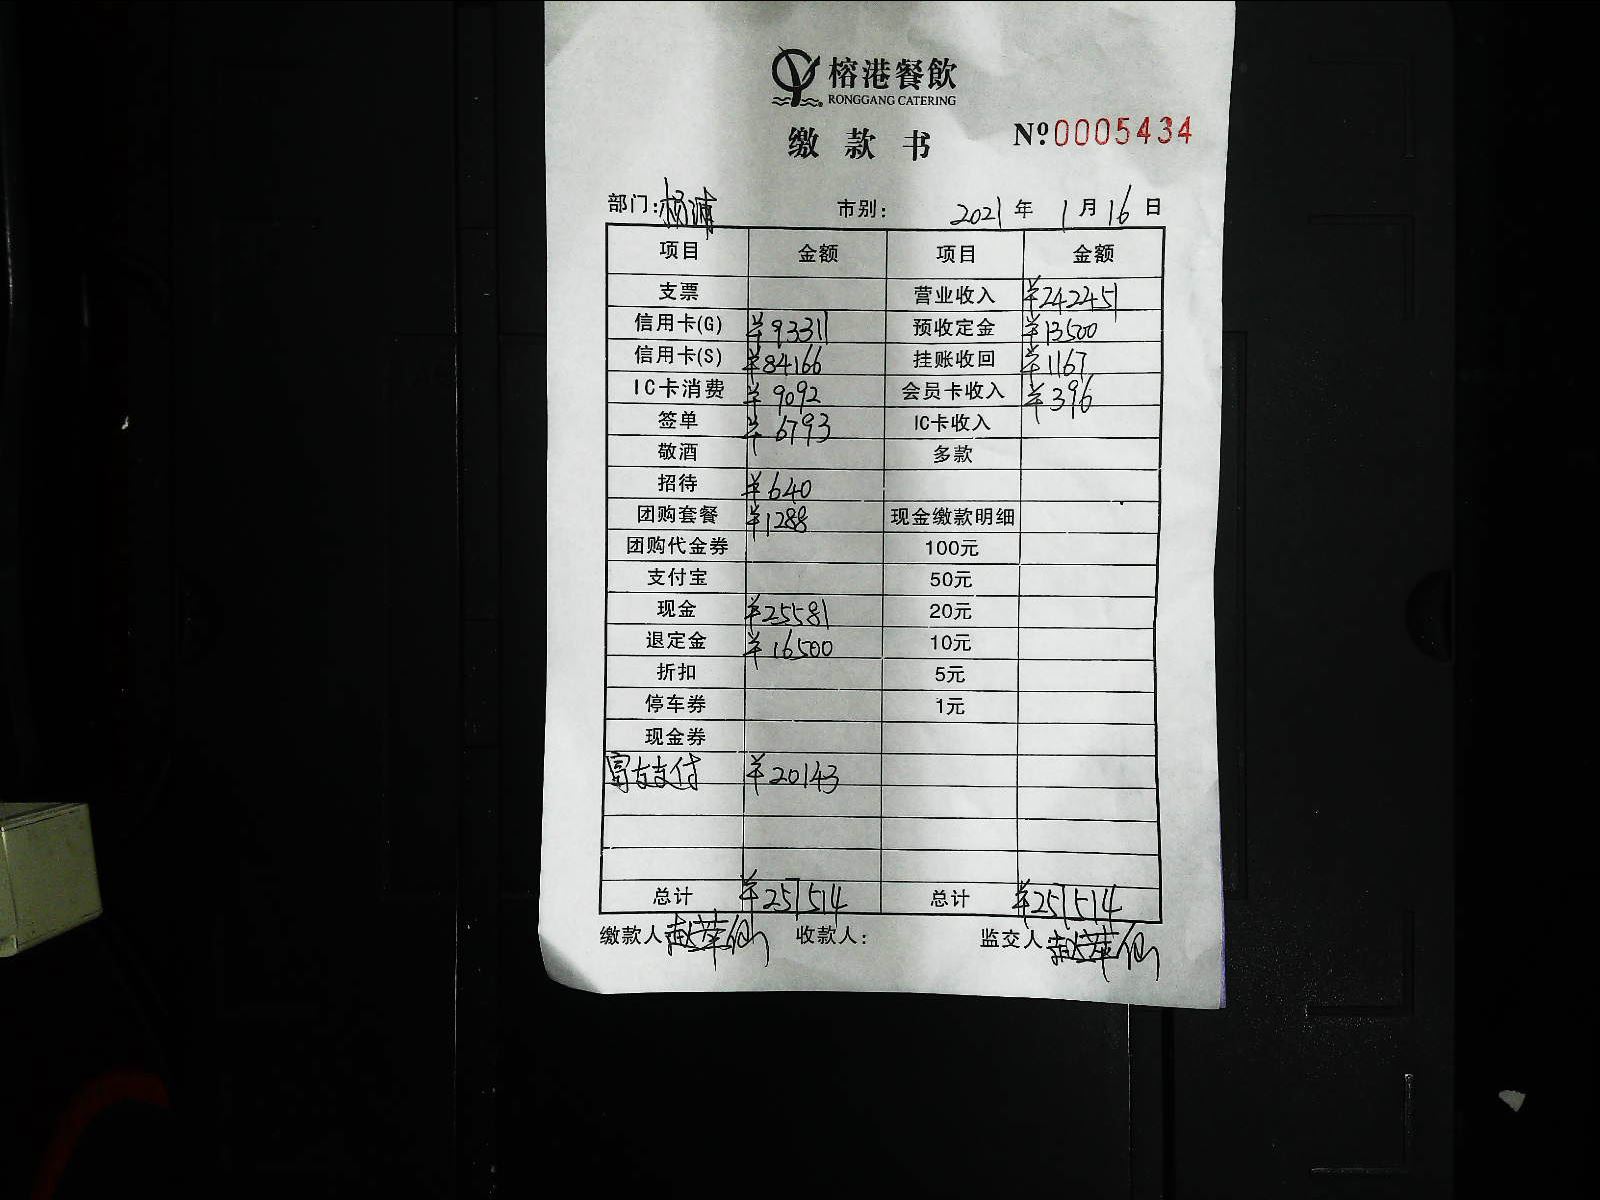 榕港餐飲
RONGGANG CATERING
缴款书 Nº0005434
部门:杨浦 市别: 2021年1月16日
项目 金额 项目 金额
支票 营业收入 ¥242451
信用卡(G) ¥93311 预收定金 ¥13500
信用卡(S) ¥84166 挂账收回 ¥1167
IC卡消费 ¥9092 会员卡收入 ¥396
签单 ¥6793 IC卡收入
敬酒 多款
招待 ¥640
团购套餐 ¥1288 现金缴款明细
团购代金券 100元
支付宝 50元
现金 ¥25581 20元
退定金 ¥16500 10元
折扣 5元
停车券 1元
现金券
富友支付 ¥20143
总计 ¥257514 总计 ¥257514
缴款人 赵萍仙 收款人: 监交人 赵萍仙